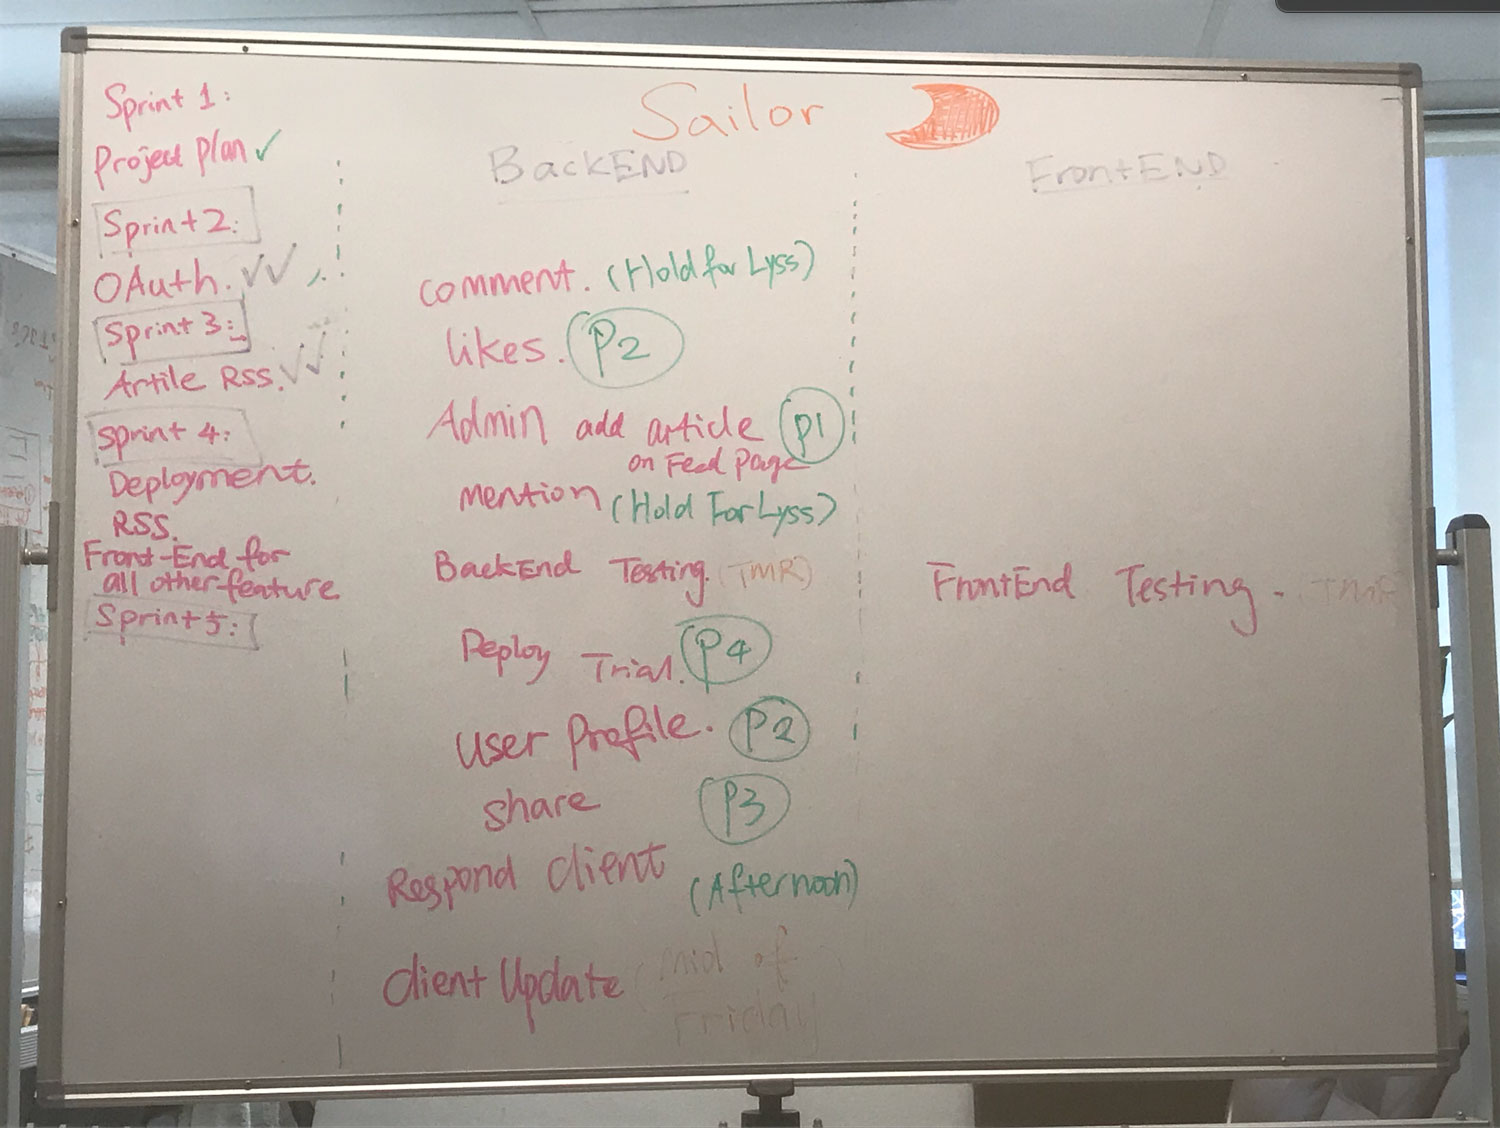 Sailor
Sprint 1:
Project plan ✓
Sprint 2:
OAuth. ✓✓
Sprint 3:
Artile RSS. ✓✓
Sprint 4:
Deployment.
RSS.
Front-End for
all other feature
Sprint 5:
BackEND
comment. (Hold for Lyss)
likes. P2
Admin add article P1
on Feed page
mention (Hold For Lyss)
BackEnd Testing. (TMR)
Deploy Trial. P4
user Profile. P2
share P3
Respond client (Afternoon)
client Update (Mid of
Friday)
FrontEND
FrontEnd Testing. (TMR)